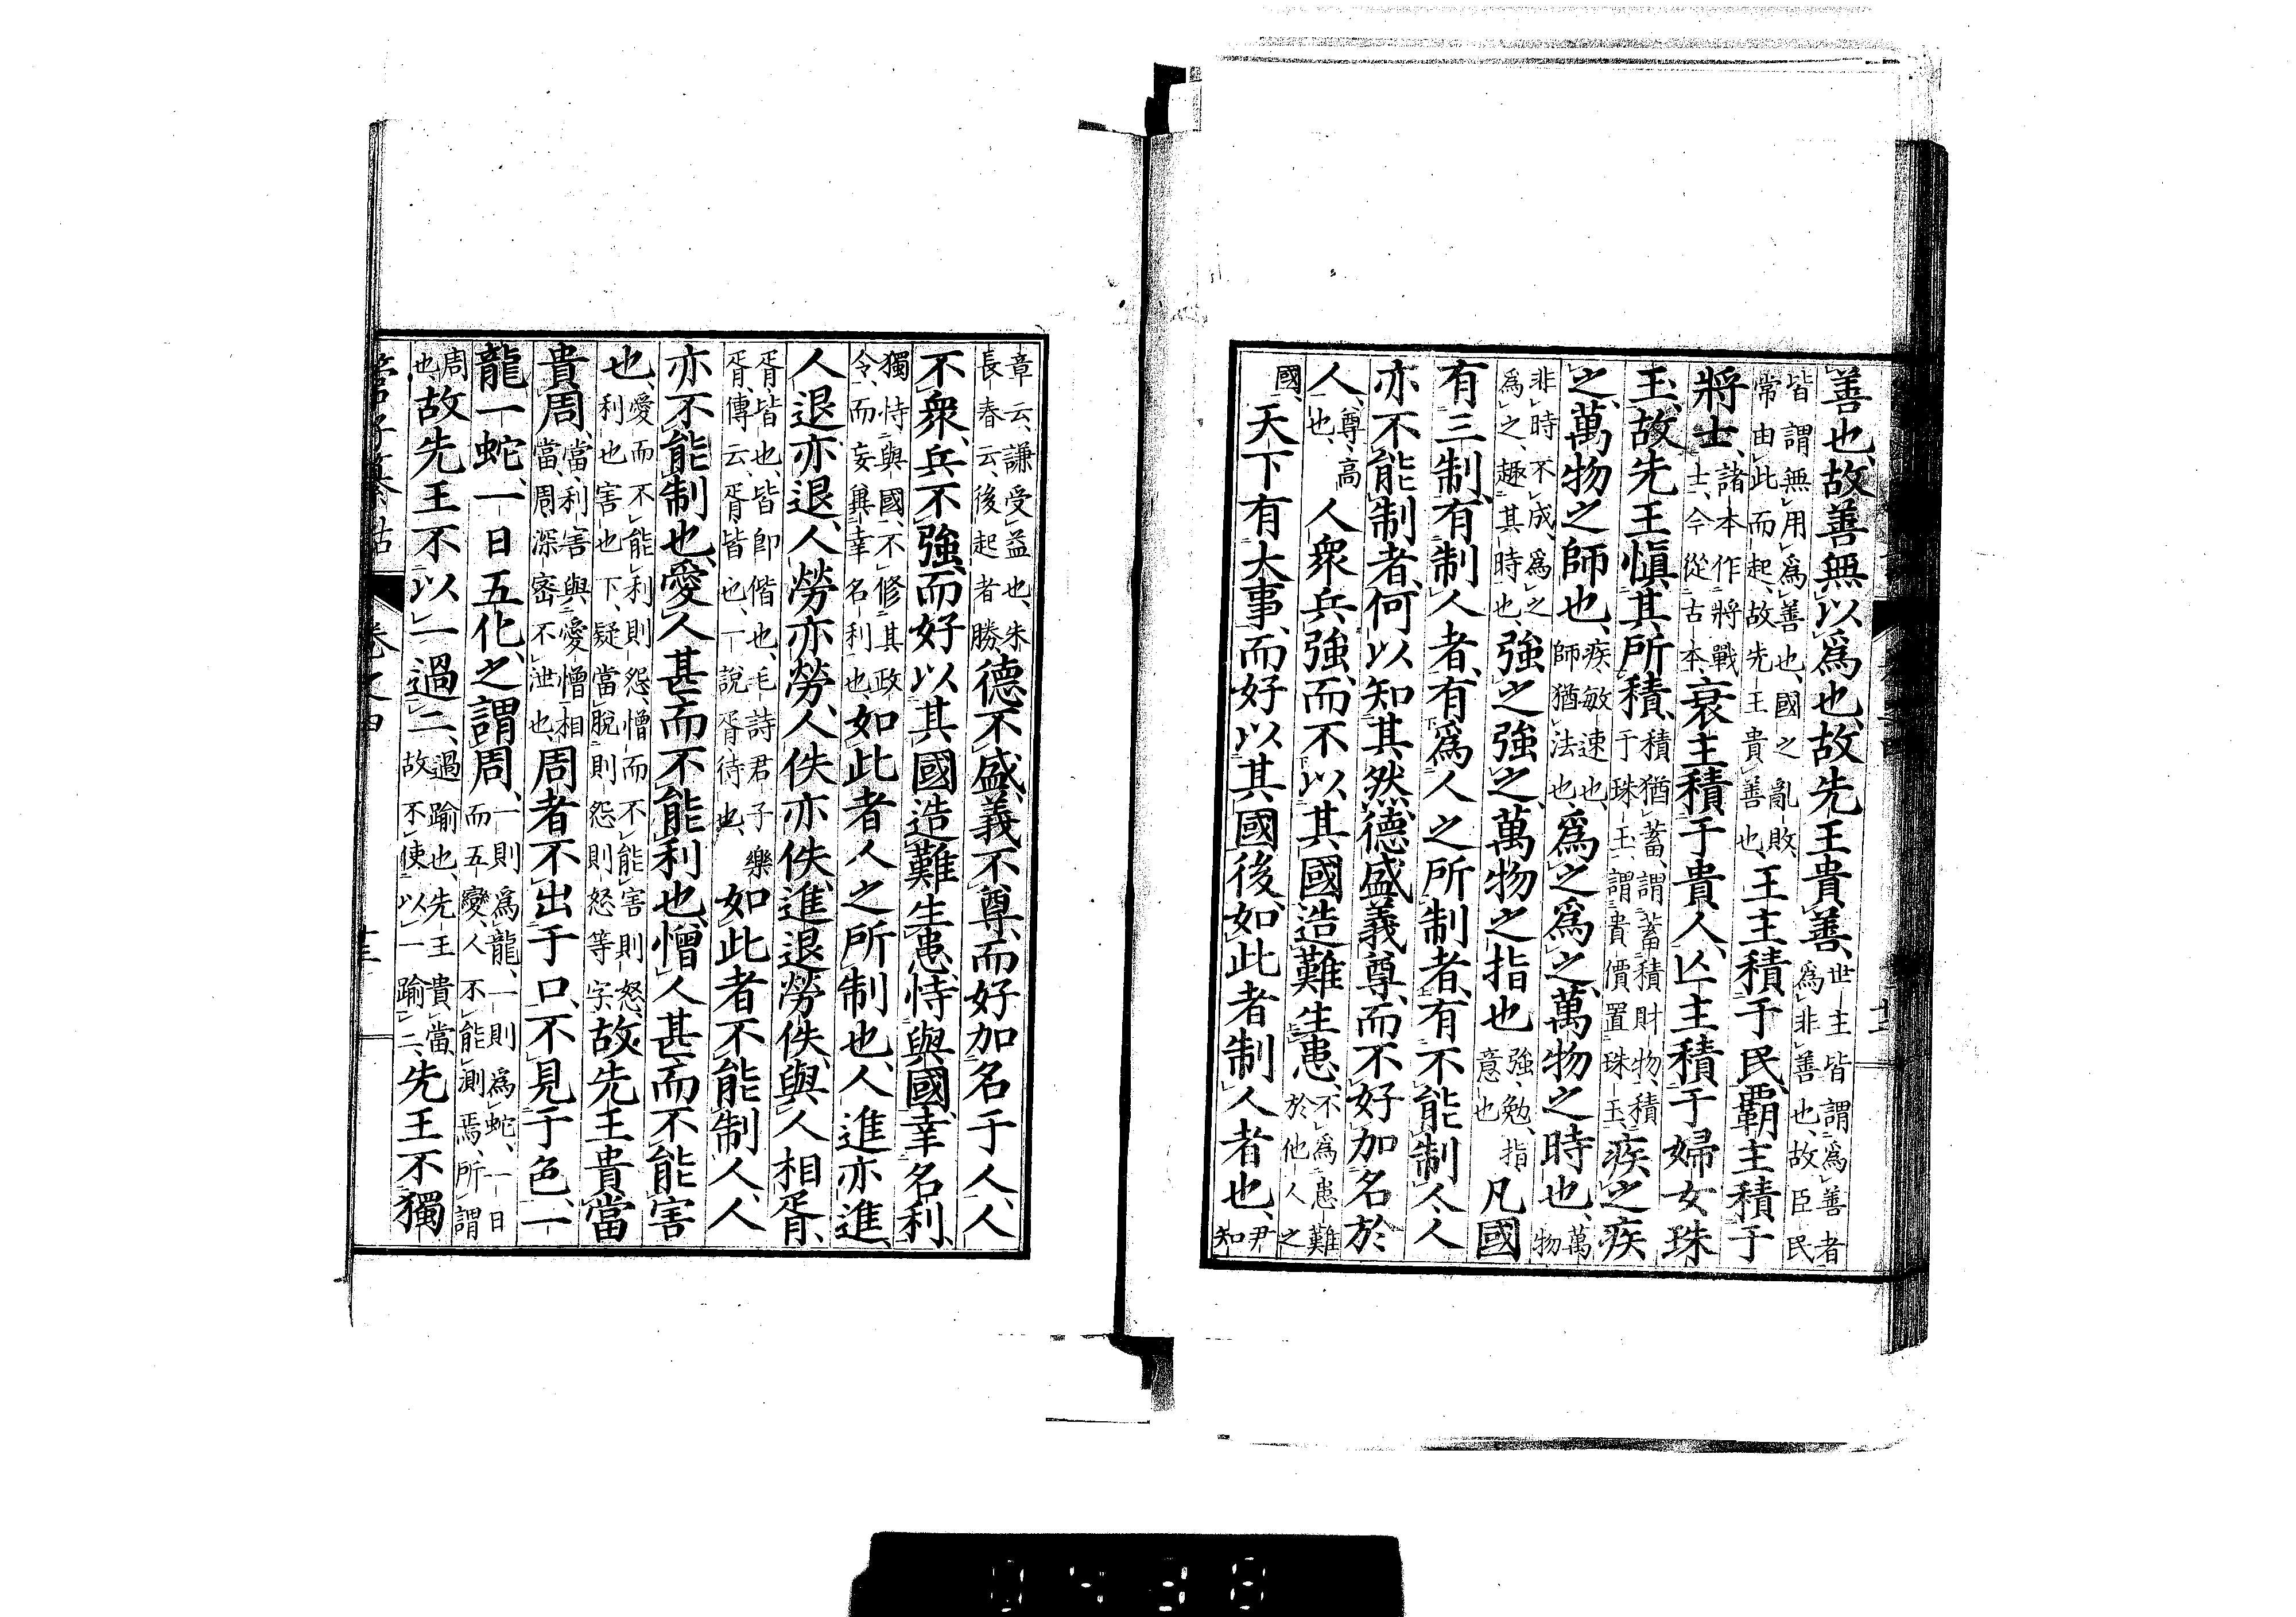 善也、故善無以爲也、故先王貴善、世主皆謂爲善者
爲非善也、故臣民
皆謂無用爲善也、國之亂敗、
常由此而起、故先王貴善也、王主積于民、霸主積于
將士、諸本作將戰
士、今從古本、衰主積于貴人、亾主積于婦女珠
玉、故先王愼其所積、積猶蓄、謂蓄積財物、積
于珠玉、謂貴價置珠玉、疾之疾
之、萬物之師也、疾敏速也、
師猶法也、爲之爲之、萬物之時也、萬
物
非時不成、爲之
爲之、趣其時也、強之強之、萬物之指也強、勉、指
意也凡國
有三制、有制人者、有爲人之所制者、有不能制人人
亦不能制者、何以知其然、德盛義尊、而不好加名於
人、尊、高
也、人衆兵強、而不以其國造難生患、不爲患難
於他人之
國、天下有大事、而好以其國後、如此者制人者也、尹
知
章云、謙受益也、朱
長春云、後起者勝德不盛、義不尊、而好加名于人、人
不衆、兵不強、而好以其國造難生患、恃與國、幸名利、
獨恃與國、不修其政
令、而妄冀幸名利也、如此者人之所制也、人進亦進、
人退亦退、人勞亦勞、人佚亦佚、進退勞佚、與人相胥、
胥皆也、皆卽偕也、毛詩君子樂
胥、傳云、胥皆也、一說胥待也、如此者不能制人、人
亦不能制也、愛人甚而不能利也、憎人甚而不能害
也、愛而不能利則怨、憎而不能害則怒、
利也害也下、疑當脫則怨則怒等字、故先王貴當
貴周、當、利害與愛憎相
當、周、深密不泄也、周者不出于口、不見于色、一
龍一蛇、一日五化、之謂周、一則爲龍、一則爲蛇、一日
而五變、人不能測焉、所謂
周
也、故先王不以一過二、過踰也、先王貴當、
故不使以一踰二、先王不獨
管子纂詁　卷之四　十三